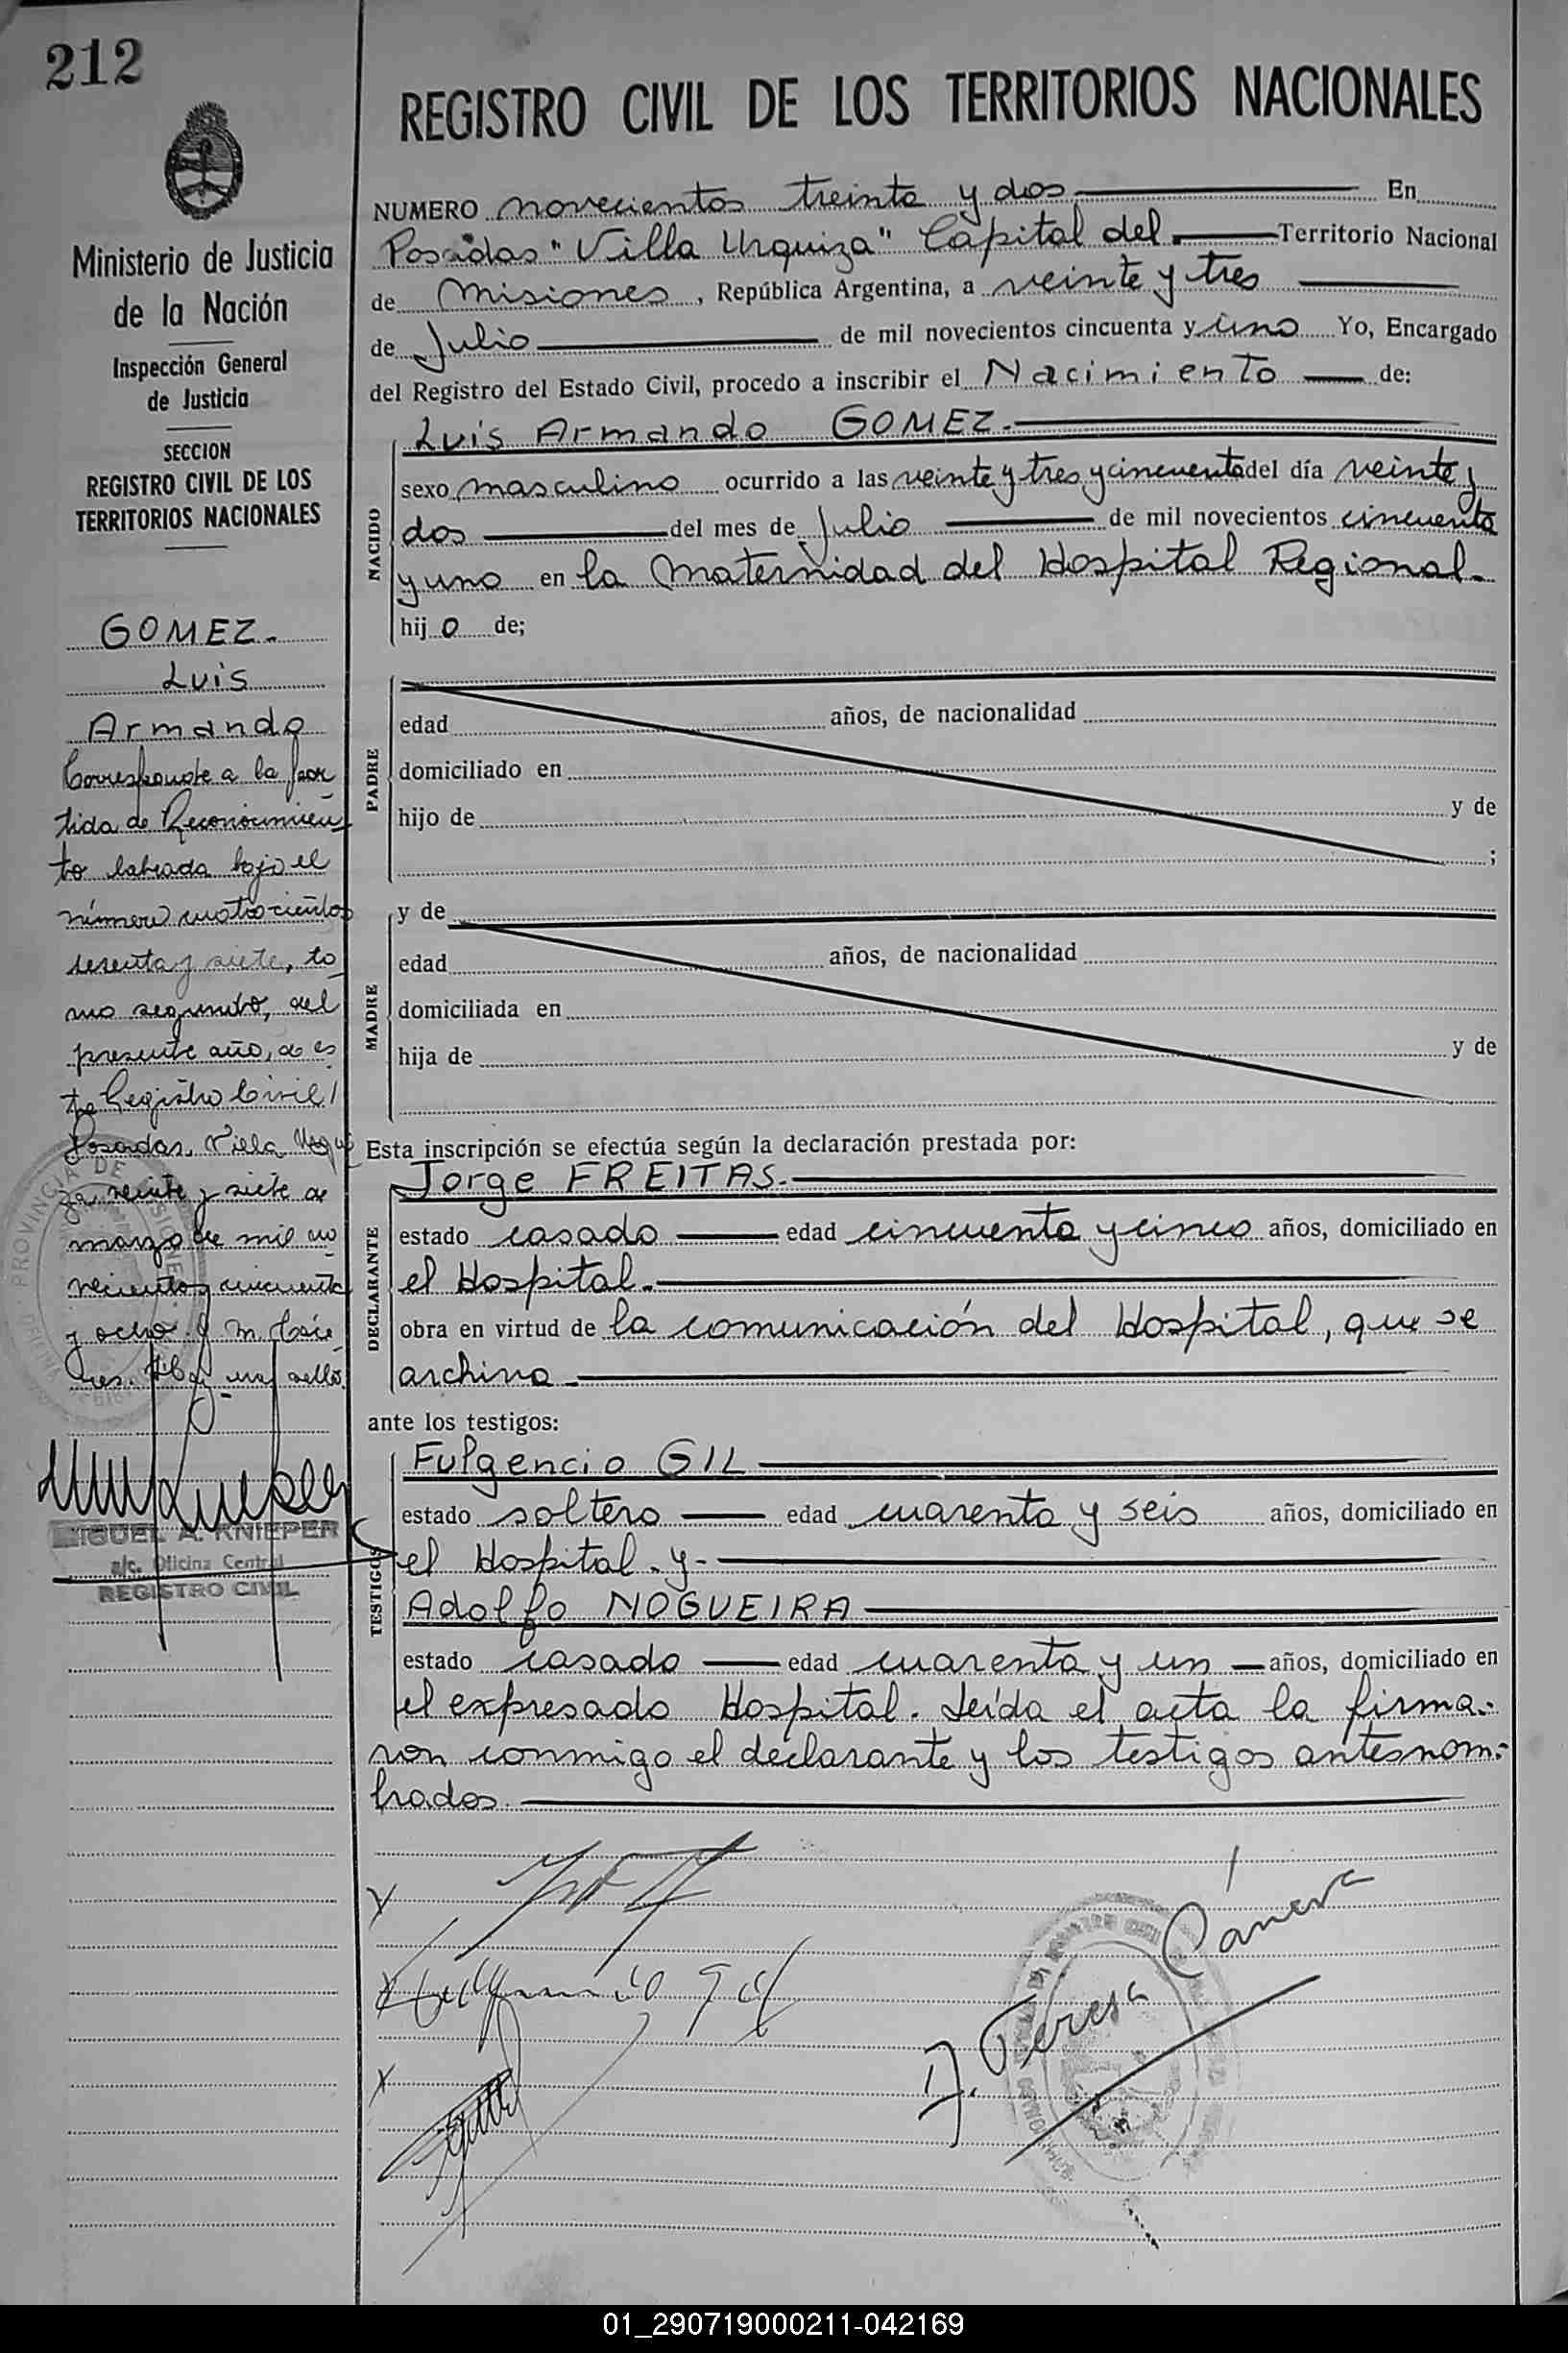 212
Ministerio de Justicia
de la Nación
Inspección General
de Justicia
SECCION
REGISTRO CIVIL DE LOS
TERRITORIOS NACIONALES
GOMEZ.
Luis
Armando
Corresponde a la par
tida de Reconocimien
to labrada bajo el
número cuatrocientos
sesenta y siete, to
mo segundo, del
presente año, de es
te Registro Civil
Posadas, Villa Urqui
za, veinte y siete de
marzo de mil no
vecientos cincuenta
y ocho.
Hay un sello.
MIGUEL A. KNIEPER
a/c. Oficina Central
REGISTRO CIVIL
REGISTRO CIVIL DE LOS TERRITORIOS NACIONALES
NUMERO novecientos treinta y dos En
Posadas "Villa Urquiza" Capital del Territorio Nacional
de Misiones, República Argentina, a veinte y tres
de Julio de mil novecientos cincuenta y uno Yo, Encargado
del Registro del Estado Civil, procedo a inscribir el Nacimiento de:
NACIDO
Luis Armando GOMEZ.
sexo masculino ocurrido a las veinte y tres y cincuenta del día veinte y
dos del mes de Julio de mil novecientos cincuenta
y uno en la Maternidad del Hospital Regional.
hijo de;
PADRE
edad años, de nacionalidad
domiciliado en
hijo de y de
;
MADRE
y de
edad años, de nacionalidad
domiciliada en
hija de y de
Esta inscripción se efectúa según la declaración prestada por:
DECLARANTE
Jorge FREITAS.
estado casado edad cincuenta y cinco años, domiciliado en
el Hospital.
obra en virtud de la comunicación del Hospital, que se
archiva
ante los testigos:
TESTIGOS
Fulgencio GIL
estado soltero edad cuarenta y seis años, domiciliado en
el Hospital. y-
Adolfo NOGUEIRA
estado casado edad cuarenta y un años, domiciliado en
el expresado Hospital. Leída el acta la firma-
ron conmigo el declarante y los testigos antesnom-
brados.
Fulgencio Gil
A. Teresa Cáneva
01_290719000211-042169